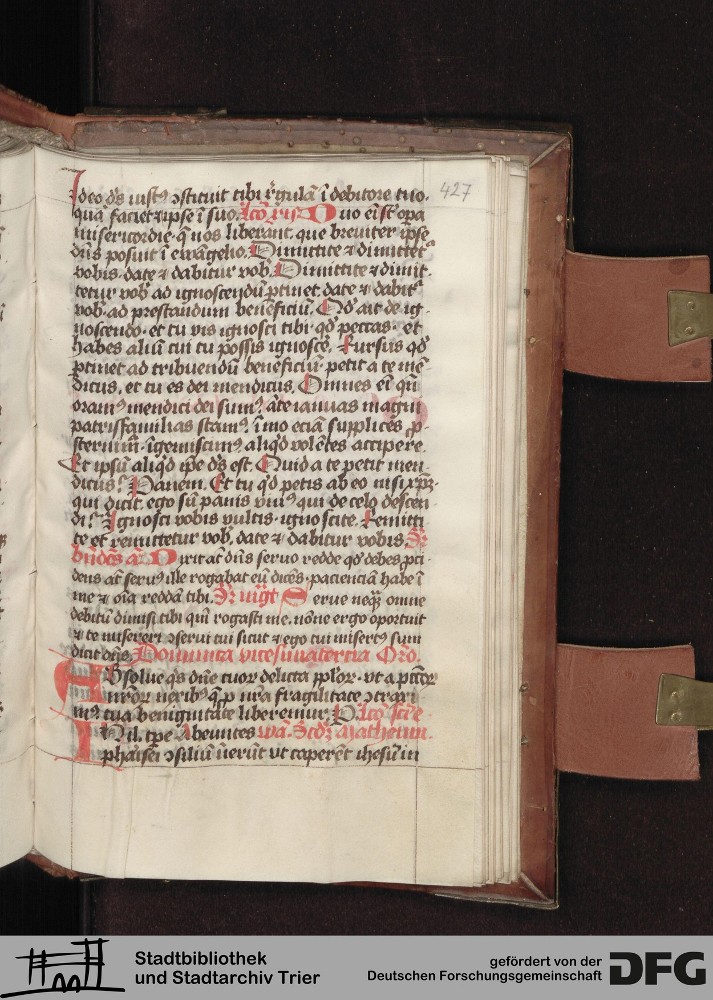 427
Ideo ds iust⁹ ɔstituit tibi rgulā ī debitore tuo.
quā faciet et ipse ī suo. Lco xi⁹ Duo eī st̄ opa
misericordie q̄ nos liberant. que breuiter ipse
dn̄s posuit ī ewāgelio. Dimittite ⁊ dimittet᷑
vobis. date ⁊ dabitur vob. Dimittite ⁊ dimit-
tetur vob ad ignoscendū ptinet. date ⁊ dabit᷑
vob. ad prestandum beneficiū. Qd ait de ig-
noscendo. et tu vis ignosci tibi qd peccas. et
habes aliū cui tu possis ignoscē. Rursus qd
ptinet ad tribuendū beneficiū. petit a te mē-
dicus. et tu es dei mendicus. Omnes eī qn̄
oram⁹ mendici dei sum⁹. āte ianuas magni
patrisfamilias stam⁹. īmo eciā supplices p-
sternim̄. īgemiscim⁹ aliqd volētes accipere.
Et ipsū aliqd ipe ds est. Quid a te petit men-
dicus? Panem. Et tu qd petis ab eo nisi xp̄m
qui dicit. ego sū panis viu⁹ qui de celo descen-
di? Ignosci vobis vultis. ignoscite. Remitti-
te et remittetur vob. date ⁊ dabitur vobis.
bn̄dc̄s a Dixit at dn̄s seruo redde qd debes pci-
dens at seru⁹ ille rogabat eū dicēs. pacienciā habe ī
me ⁊ oīa reddā tibi. Serue neq̄ omne
debitū dimisi tibi qm̄ rogasti me. nōne ergo oportuit
⁊ te misereri ɔserui tui sicut ⁊ ego tui misert⁹ sum
dicit dn̄s. Dominica vicesimatercia Oro.
Absolue qs dn̄e tuor delicta pplor. vt a pctōr
nr̄or nexib⁹ q̄ p nr̄a fragilitate ɔtraxi-
m⁹ tua benignitate liberemur. P. Lco sc̄e
In il. tpe Abeuntes wā. Scdm Matheum.
pharisei ɔsiliū inierūt vt caperēt ihesū in
Stadtbibliothek
und Stadtarchiv Trier
gefördert von der
Deutschen Forschungsgemeinschaft
DFG